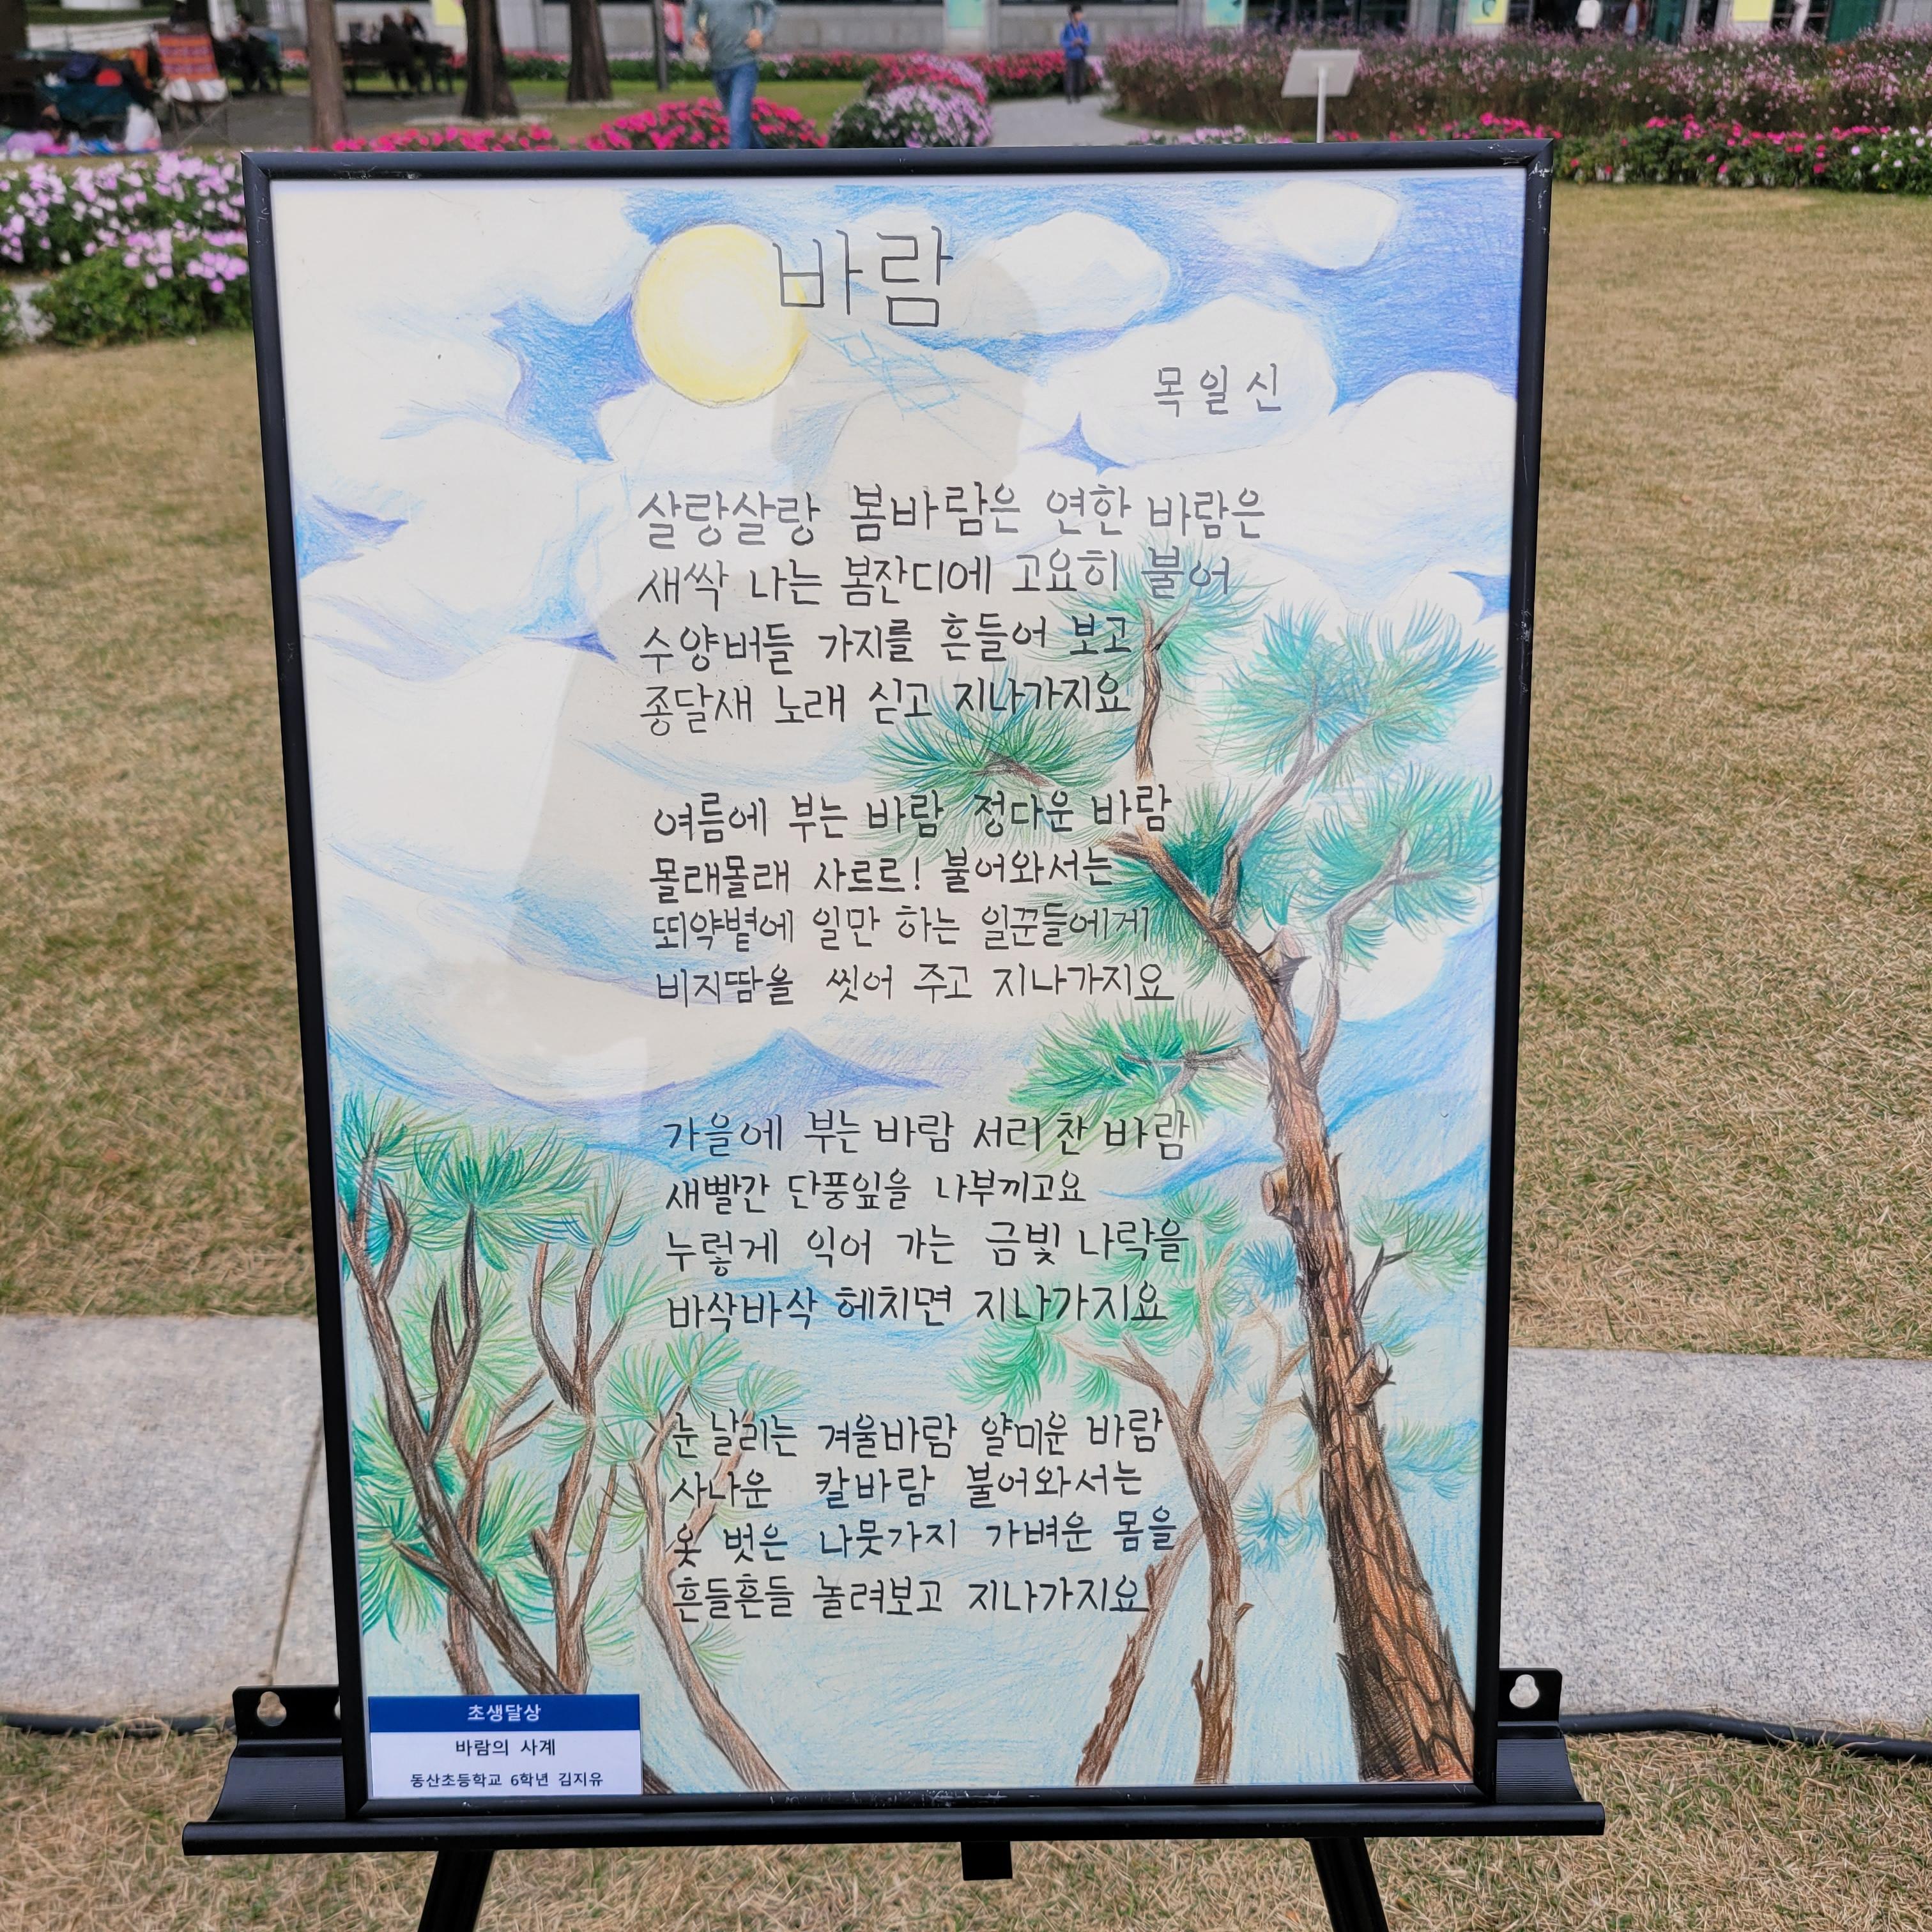 바람
목일신
살랑살랑 봄바람은 연한 바람은
새싹 나는 봄잔디에 고요히 불어
수양버들 가지를 흔들어 보고
종달새 노래 싣고 지나가지요
여름에 부는 바람 정다운 바람
몰래몰래 사르르! 불어와서는
뙤약볕에 일만 하는 일꾼들에게
비지땀을 씻어 주고 지나가지요
가을에 부는 바람 서리 찬 바람
새빨간 단풍잎을 나부끼고요
누렇게 익어 가는 금빛 나락을
바삭바삭 헤치면 지나가지요
눈 날리는 겨울바람 얄미운 바람
사나운 칼바람 불어와서는
옷 벗은 나뭇가지 가벼운 몸을
흔들흔들 놀려보고 지나가지요
초생달상
바람의 사계
동산초등학교 6학년 김지유